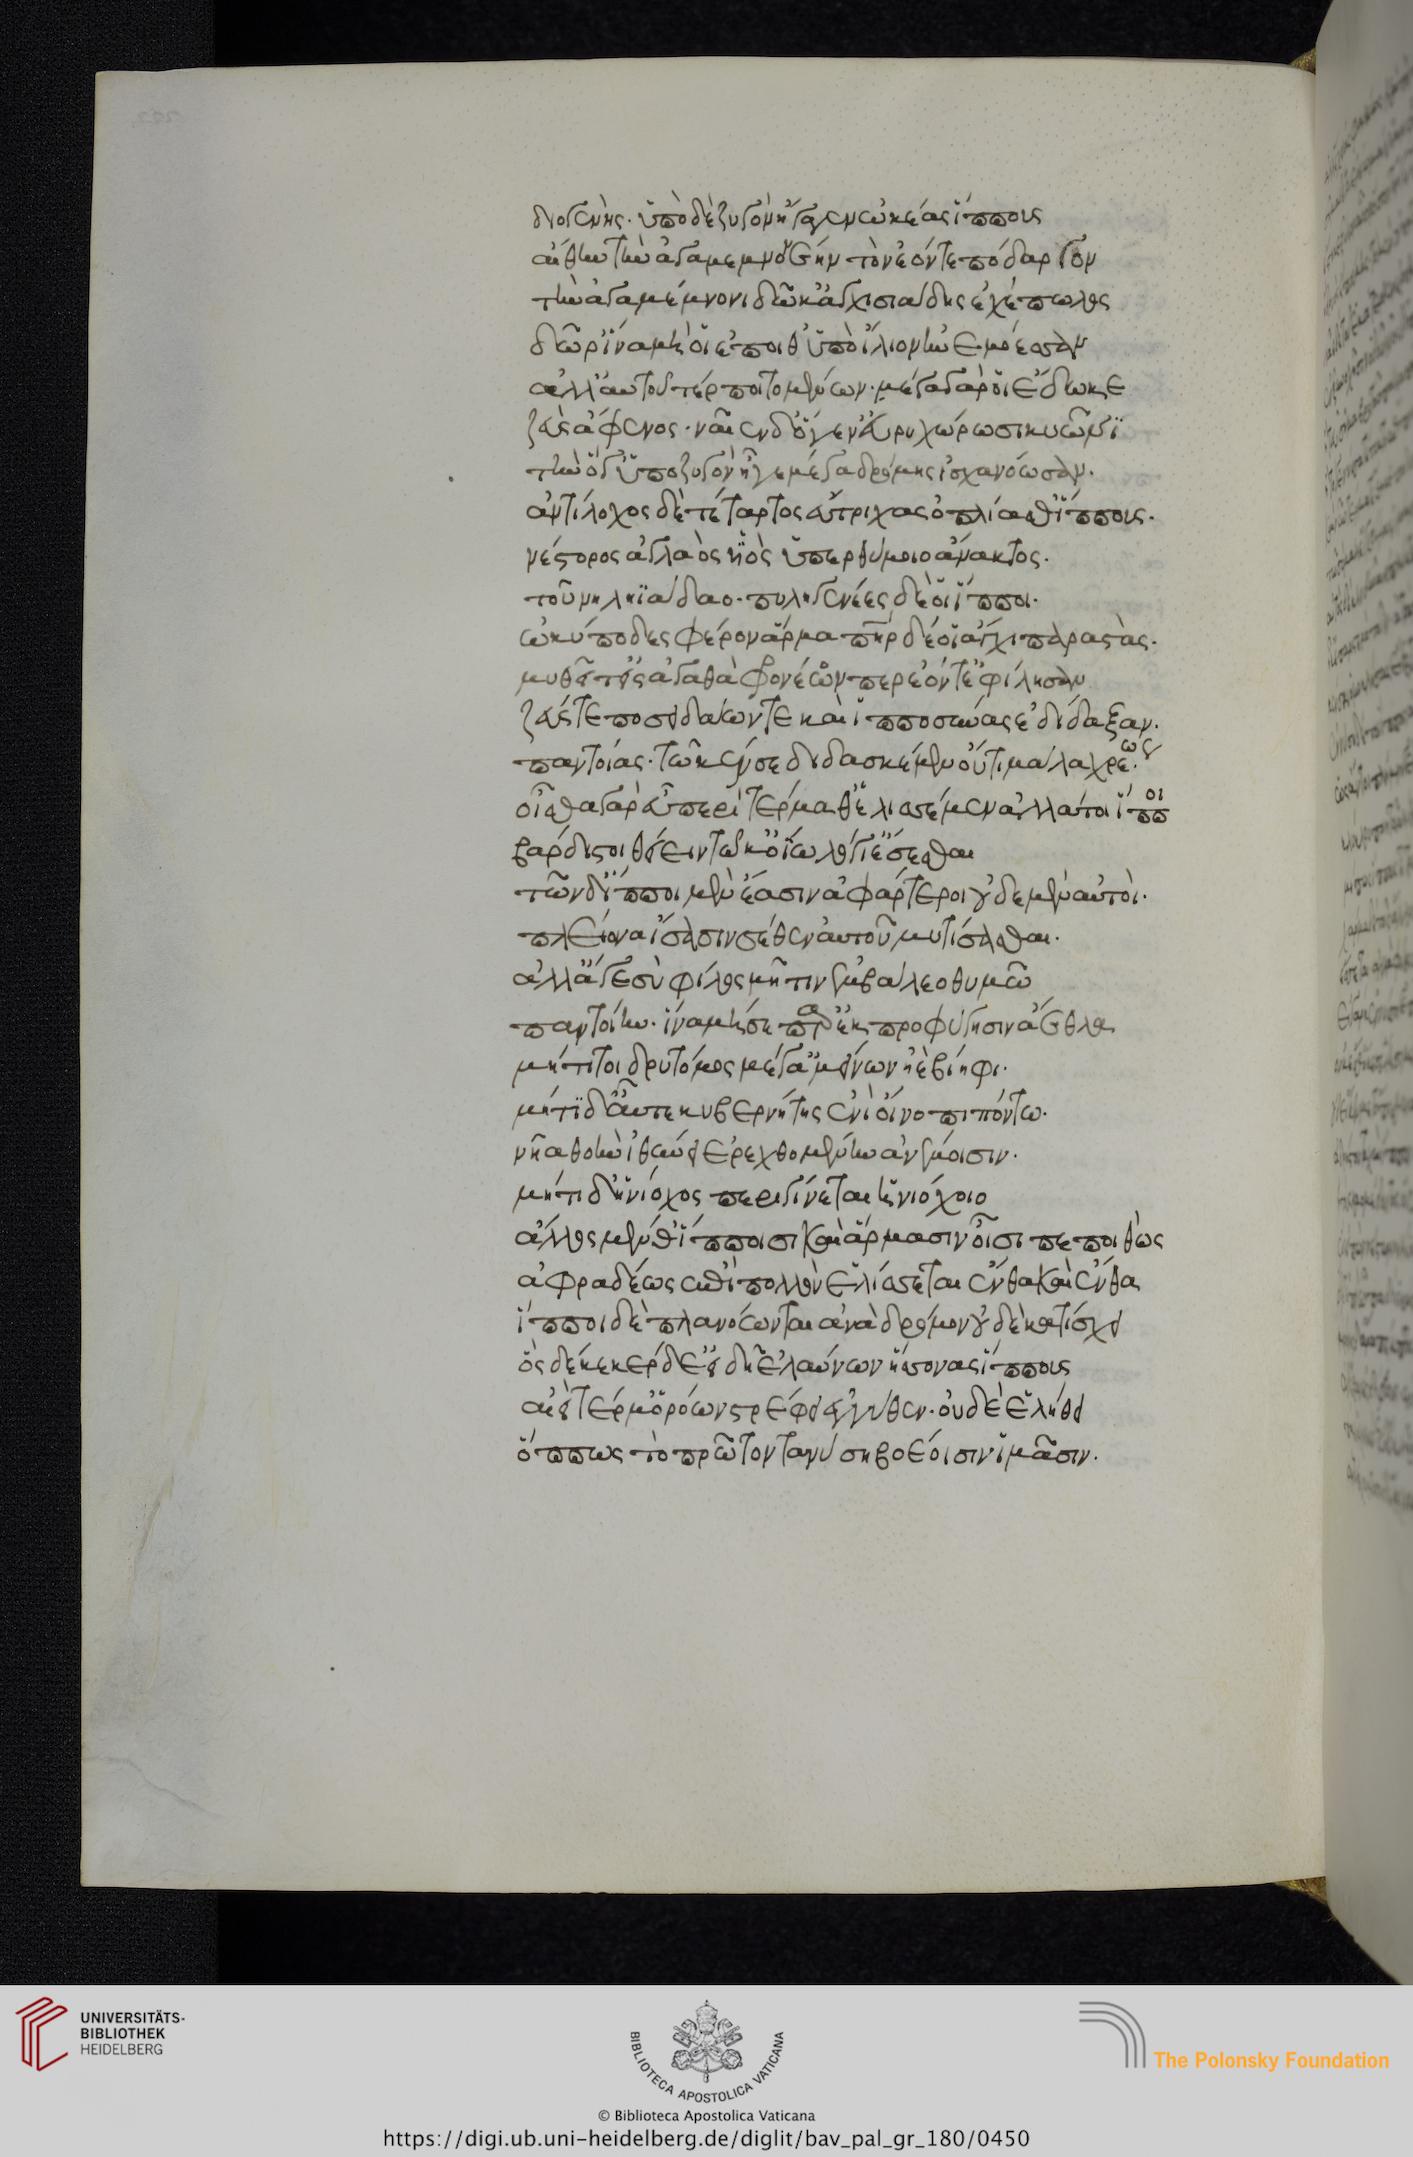 διογενὴς· ὑπὸ δὲ ζυγὸν ἤγαγεν ὠκέας ἵππους
αἴθην τὴν ἀγαμεμνονέην τὸν ἑόν τε πόδαργον
τὴν ἀγαμέμνονι δῶκ' ἀγχισιάδης ἐχέπωλος
δῶρ' ἵνα μή οἱ ἕποιθ' ὑπὸ ἴλιον ἠνεμόεσσαν
ἀλλ' αὐτοῦ τέρποιτο μένων· μέγα γάρ οἱ ἔδωκε
ζεὺς ἄφενος· ναῖεν δ' ὅγ' ἐν εὐρυχώρω σικυῶνι
τὴν ὅγ' ὑπο ζυγὸν ἦγε μέγα δρόμης ἰσχανόωσαν.
ἀντίλοχος δὲ τέταρτος εὔτριχας ὁπλίσαθ' ἵππους.
νέστορος ἀγλαὸς υἱὸς ὑπερθύμοιο ἄνακτος.
τοῦ νηληϊάδαο. πυληγενέες δέ οἱ ἵπποι.
ὠκύποδες φέρον ἅρμα πατὴρ δέ οἱ ἄγχι παραστὰς.
μυθεῖτ' εἰς ἀγαθὰ φρονέων περ ἐόντ' ἐφίλησαν
ζεύς τε ποσειδάων τε καὶ ἱπποσύνας ἐδίδαξαν.
παντοίας. τῶ καί σε διδασκέμεν οὔτι μάλα χρεώ.
οἶσθα γὰρ εὖ περὶ τέρμαθ' ἑλισσέμεν ἀλλά τοι ἵπποι
βάρδιστοι θείειν τῶ κ' οἴω λοίγι' ἔσεσθαι
τῶν δ' ἵπποι μὲν ἔασιν ἀφάρτεροι οὐδε μὲν αὐτοὶ.
πλείονα ἴσασιν σέθεν αὐτοῦ μυτίσασθαι.
ἀλλ' ἄγε σὺ φίλος μῆτιν ἐμβάλεο θυμῶ
παντοίην. ἵνα μή σε παρεκπροφύγησιν ἄεθλα
μήτι τοι δρυτόμος μέγ' ἀμείνων ἠὲ βίηφι.
μήτι δ' αὖτε κυβερνήτης ἐνὶ οἴνοπι πόντω.
νῆα θοὴν ἰθύνει ἐρεχθομένην ἀνέμοισιν.
μήτι δ' ἡνίοχος περιγίνεται ἡνιόχοιο
ἄλλος μέν θ' ἵπποισι καὶ ἅρμασιν οἷσι πεποιθὼς
ἀφραδέως ἐπὶ πολλὸν ἑλίσσεται ἔνθα καὶ ἔνθα
ἵπποι δὲ πλανόωνται ἀνὰ δρόμον οὐδὲ κατίσχει
ὃς δέ κε κέρδε' εἰδῆ ἐλαύνων ἥσσονας ἵππους
αἰεὶ τέρμ' ὁρόων στρέφει ἐγγύθεν. οὐδὲ ἑ λήθει
ὅππως τὸ πρῶτον τανύση βοέοισιν ἱμᾶσιν.
UNIVERSITÄTS-
BIBLIOTHEK
HEIDELBERG
BIBLIOTECA APOSTOLICA VATICANA
The Polonsky Foundation
© Biblioteca Apostolica Vaticana
https://digi.ub.uni-heidelberg.de/diglit/bav_pal_gr_180/0450